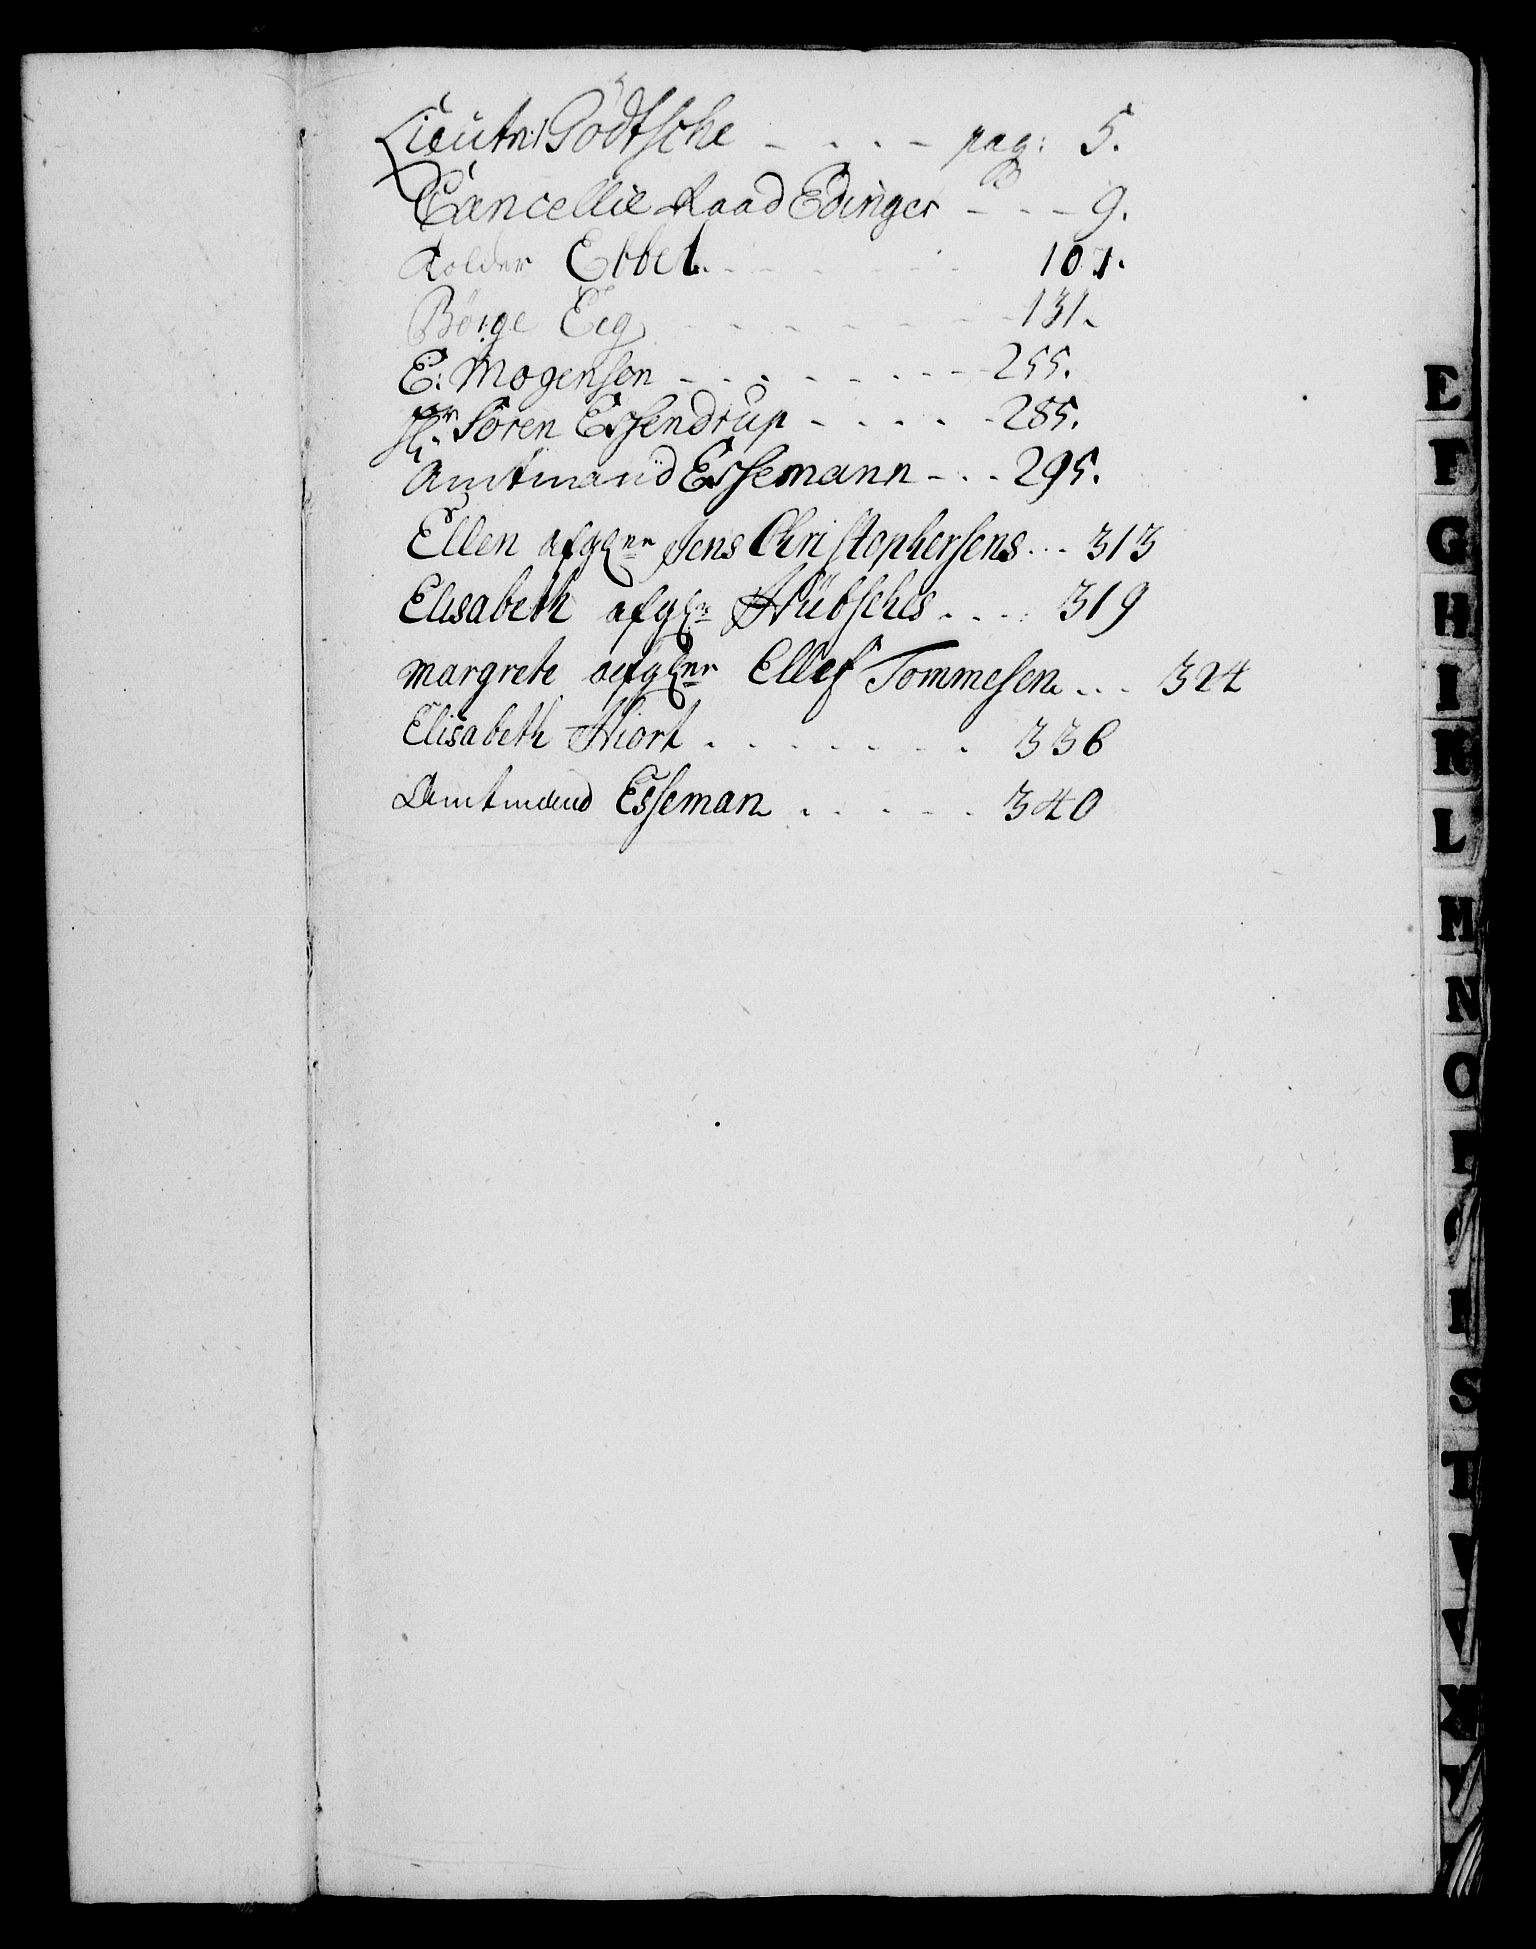 Lieutn: Gödtsche - - - - pag: 5.
Cancellie Raad Edinger - - - 9.
Kolder Ebbel. - - - - - - 101.
Börge Eeg - - - - - - - 131.
E: Mogensen - - - - - - - 255.
Hr Sören Essendrup - - - - - 285.
Amtmand Essemann - - - 295.
Ellen afgl: Jens Christophersens - - - 313
Elisabeth afgl: Hübsches - - - - 319
Margrete afgl: Ellef Tommesen - - - 324
Elisabeth Hiort - - - - - - - 336
Amtmand Esseman - - - - - 340
E
F
G
H
I
K
L
M
N
O
P
Q
R
S
T
V
W
X
Y